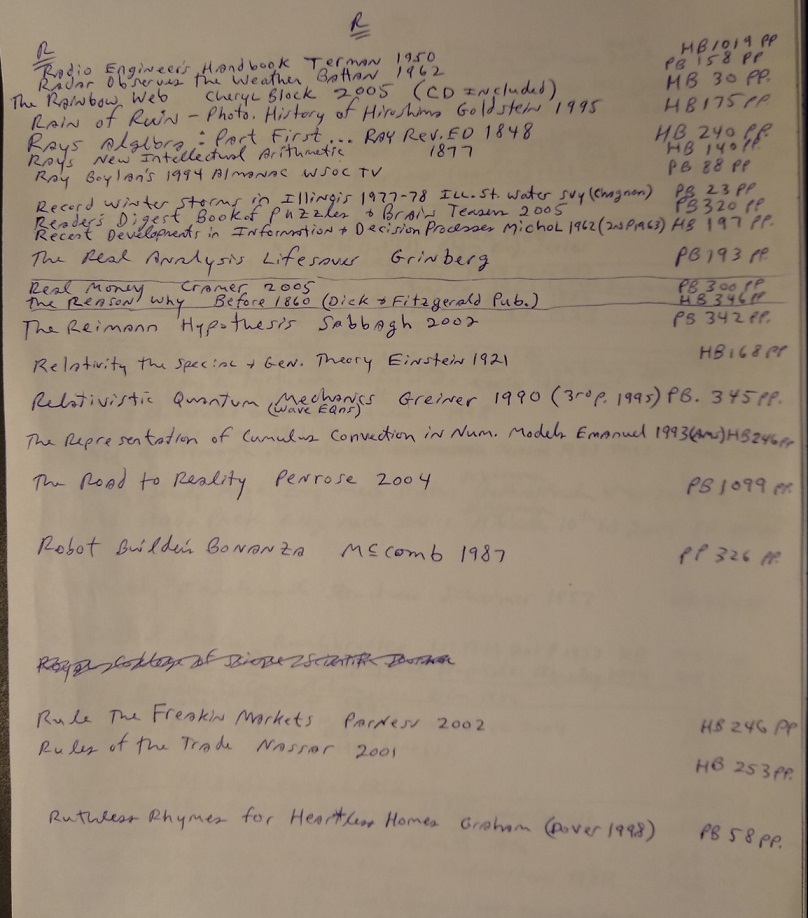 R
R
Radio Engineers Handbook Terman 1950 HB 1019 PP
Radar Observes the Weather Battan 1962 PB 158 PP
The Rainbow Web Cheryl Block 2005 (CD Included) HB 30 PP.
Rain of Ruin - Photo. History of Hiroshima Goldstein 1995 HB 175 PP
Rays Algebra: Part First... RAY Rev. ED 1848 HB 240 PP.
Rays New Intellectual Arithmetic 1877 HB 140 PP.
Ray Boylan's 1994 Almanac WSOC TV PB 88 PP
Record Winter Storms in Illinois 1977-78 Ill. St. Water Svy (Changnon) PB 23 PP
Reader's Digest Book of Puzzles + Brain Teasers 2005 PB 320 PP.
Recent Developments in Information + Decision Processes Michol 1962 (2nd P. 1963) HB 197 PP.
The Real Analysis Lifesaver Grinberg PB 193 PP.
Real Money Cramer 2005 PB 300 PP
The Reason Why Before 1860 (Dick + Fitzgerald Pub.) HB 346 PP
The Reimann Hypothesis Sabbagh 2002 PB 342 PP.
Relativity the Special + Gen. Theory Einstein 1921 HB 168 PP
Relativistic Quantum Mechanics Greiner 1990 (3rd P. 1995) PB. 345 PP.
(Wave EQns)
The Representation of Cumulus Convection in Num. Models Emanuel 1993 (AMS) HB 246 PP
The Road to Reality Penrose 2004 PB 1099 PP.
Robot Builder's Bonanza McComb 1987 PP 326 PP.
Rule The Freakin Markets Parness 2002 HB 246 PP
Rules of the Trade Nassar 2001 HB 253 PP.
Ruthless Rhymes for Heartless Homes Graham (Dover 1998) PB 58 PP.